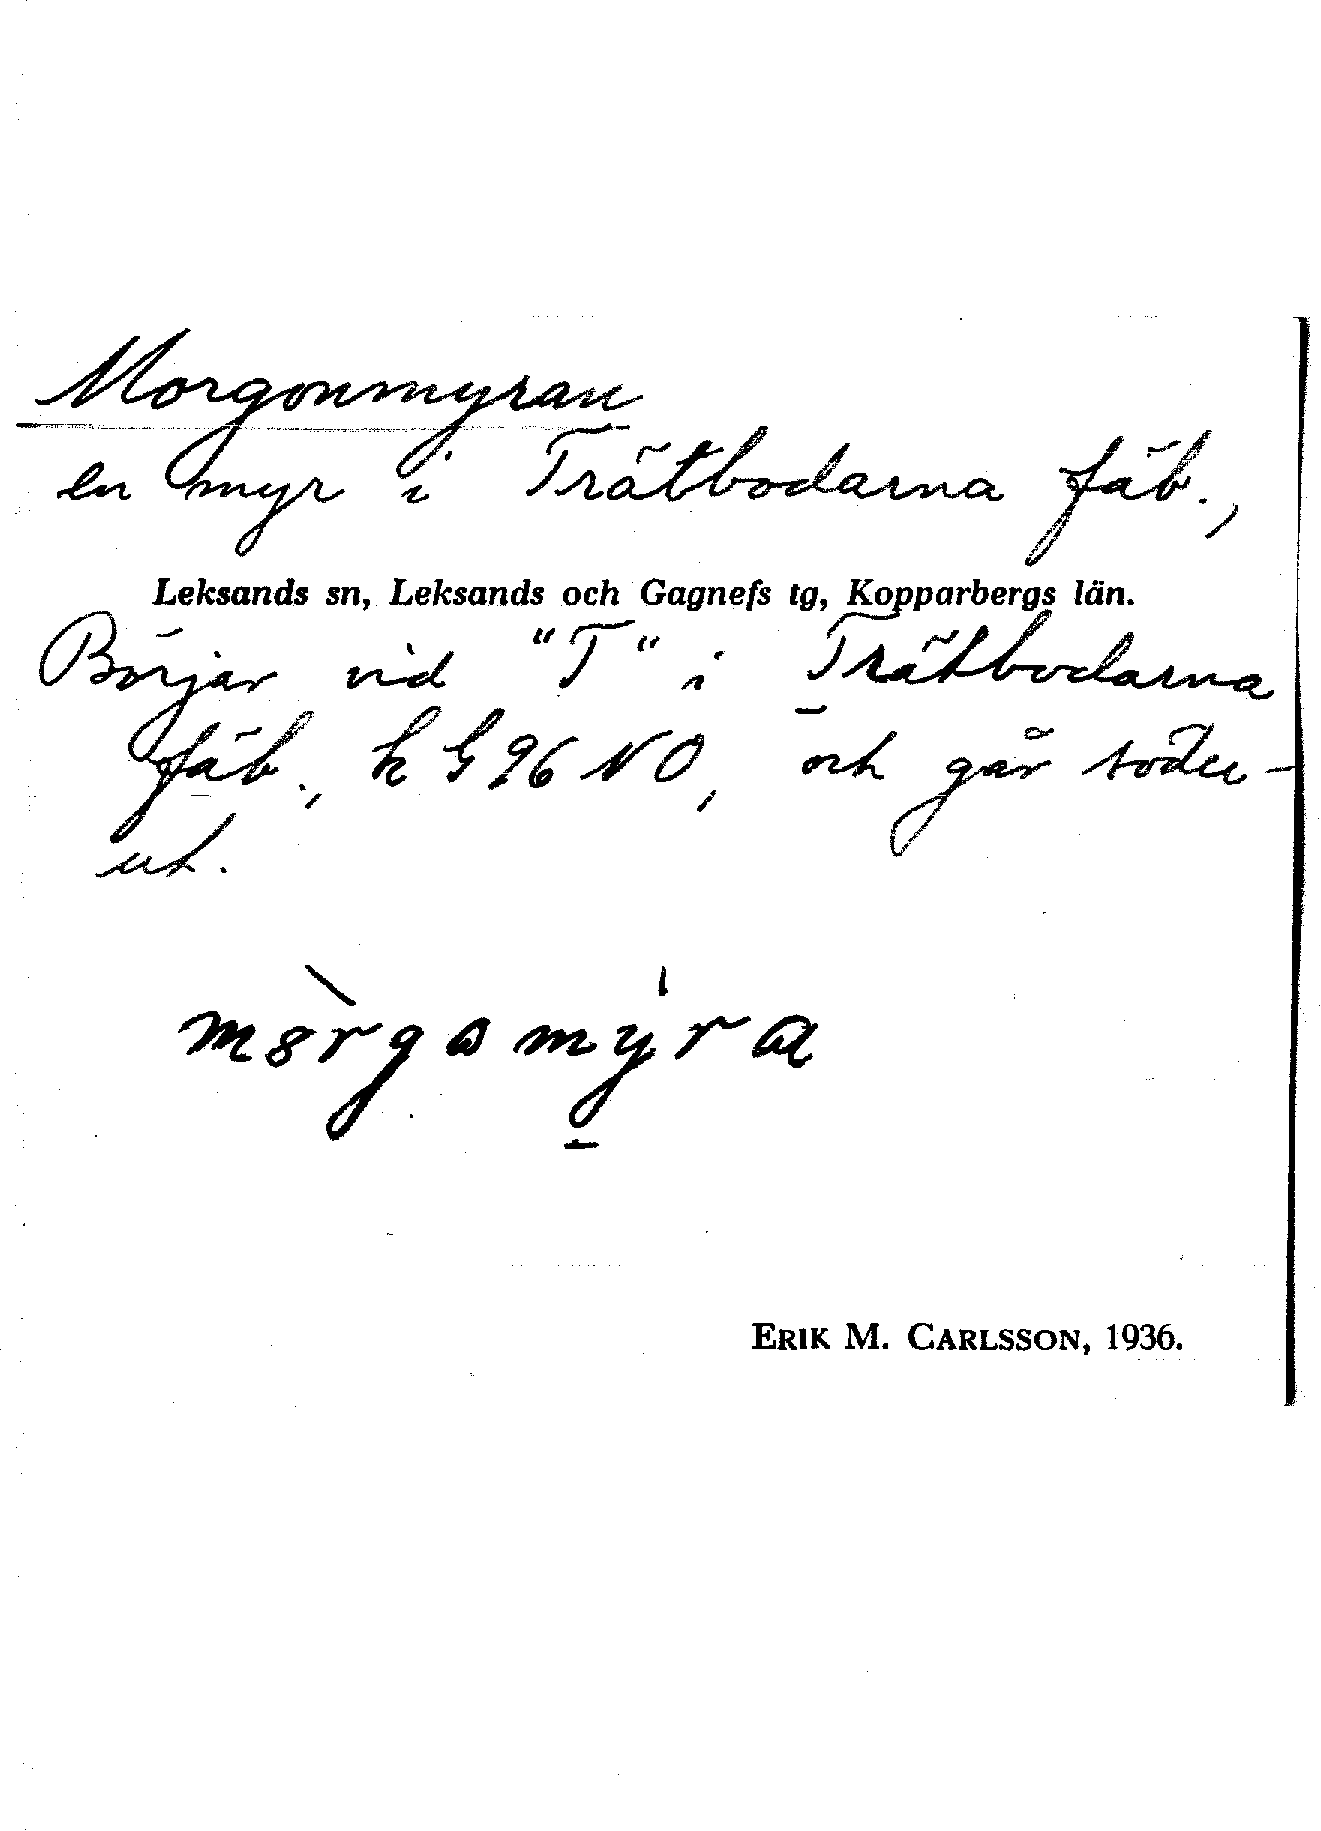 Morgonmyran
en myr i Trätbodarna fäb.,
Leksands sn, Leksands och Gagnefs tg, Kopparbergs län.
Börjar vid "T" i Trätbodarna
fäb., k G 96 NO, och går söder-
ut.
ERIK M. CARLSSON, 1936.